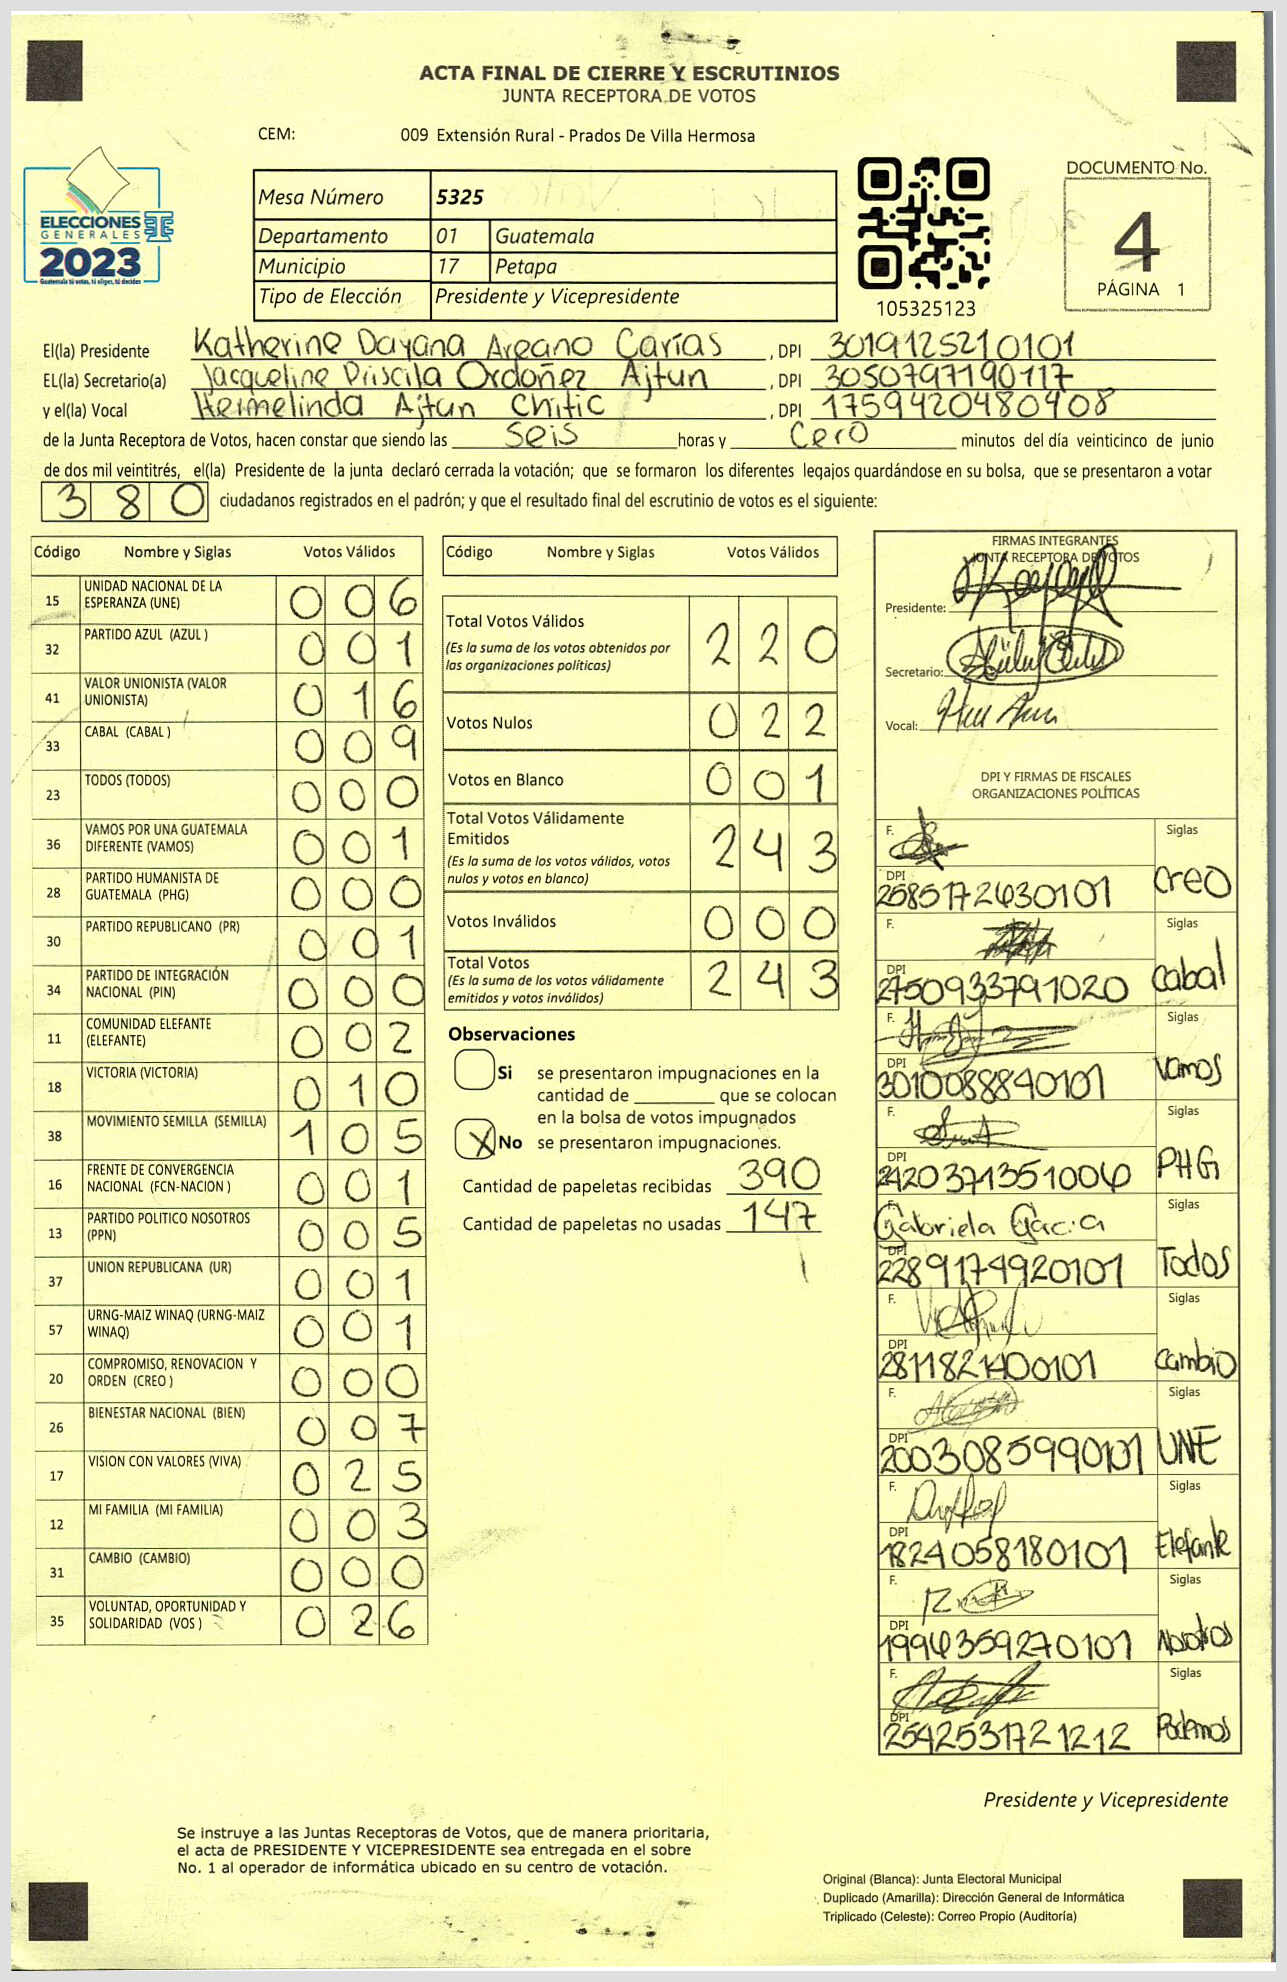 ACTA FINAL DE CIERRE Y ESCRUTINIOS
JUNTA RECEPTORA DE VOTOS
CEM: 009 Extensión Rural - Prados De Villa Hermosa
ELECCIONES
GENERALES
2023
Guatemala tú votas, tú eliges, tú decides
Mesa Número 5325
Departamento 01 Guatemala
Municipio 17 Petapa
Tipo de Elección Presidente y Vicepresidente
105325123
DOCUMENTO No.
4
PÁGINA 1
El(la) Presidente Katherine Dayana Areano Carías , DPI 3019125210101
EL(la) Secretario(a) Jacqueline Priscila Ordoñez Ajtun , DPI 3050797190117
y el(la) Vocal Hermelinda Ajtun Chitic , DPI 1759420480408
de la Junta Receptora de Votos, hacen constar que siendo las seis horas y cero minutos del día veinticinco de junio
de dos mil veintitrés, el(la) Presidente de la junta declaró cerrada la votación; que se formaron los diferentes legajos guardándose en su bolsa, que se presentaron a votar
380 ciudadanos registrados en el padrón; y que el resultado final del escrutinio de votos es el siguiente:
Código Nombre y Siglas Votos Válidos
15 UNIDAD NACIONAL DE LA ESPERANZA (UNE) 006
32 PARTIDO AZUL (AZUL ) 001
41 VALOR UNIONISTA (VALOR UNIONISTA) 016
33 CABAL (CABAL ) 009
23 TODOS (TODOS) 000
36 VAMOS POR UNA GUATEMALA DIFERENTE (VAMOS) 001
28 PARTIDO HUMANISTA DE GUATEMALA (PHG) 000
30 PARTIDO REPUBLICANO (PR) 001
34 PARTIDO DE INTEGRACIÓN NACIONAL (PIN) 000
11 COMUNIDAD ELEFANTE (ELEFANTE) 002
18 VICTORIA (VICTORIA) 010
38 MOVIMIENTO SEMILLA (SEMILLA) 105
16 FRENTE DE CONVERGENCIA NACIONAL (FCN-NACION ) 001
13 PARTIDO POLITICO NOSOTROS (PPN) 005
37 UNION REPUBLICANA (UR) 001
57 URNG-MAIZ WINAQ (URNG-MAIZ WINAQ) 001
20 COMPROMISO, RENOVACION Y ORDEN (CREO ) 000
26 BIENESTAR NACIONAL (BIEN) 007
17 VISION CON VALORES (VIVA) 025
12 MI FAMILIA (MI FAMILIA) 003
31 CAMBIO (CAMBIO) 000
35 VOLUNTAD, OPORTUNIDAD Y SOLIDARIDAD (VOS ) 026
Código Nombre y Siglas Votos Válidos
Total Votos Válidos 220
(Es la suma de los votos obtenidos por
las organizaciones políticas)
Votos Nulos 022
Votos en Blanco 001
Total Votos Válidamente
Emitidos 243
(Es la suma de los votos válidos, votos
nulos y votos en blanco)
Votos Inválidos 000
Total Votos 243
(Es la suma de los votos válidamente
emitidos y votos inválidos)
Observaciones
Si se presentaron impugnaciones en la
cantidad de ________ que se colocan
en la bolsa de votos impugnados
X No se presentaron impugnaciones.
Cantidad de papeletas recibidas 390
Cantidad de papeletas no usadas 147
FIRMAS INTEGRANTES
JUNTA RECEPTORA DE VOTOS
Presidente:
Secretario:
Vocal:
DPI Y FIRMAS DE FISCALES
ORGANIZACIONES POLÍTICAS
F. Siglas
DPI 2585172630101 Creo
F. Siglas
DPI 2750933791020 Cabal
F. Siglas
DPI 3010088840101 Vamos
F. Siglas
DPI 2420371351006 PHG
F. Gabriela Garcia Siglas
DPI 2289174920101 Todos
F. Siglas
DPI 2811821400101 Cambio
F. Siglas
DPI 2003085990101 UNE
F. Siglas
DPI 1824058180101 Elefante
F. Siglas
DPI 1996359270101 Nosotros
F. Siglas
DPI 2542531721212 Podemos
Presidente y Vicepresidente
Se instruye a las Juntas Receptoras de Votos, que de manera prioritaria,
el acta de PRESIDENTE Y VICEPRESIDENTE sea entregada en el sobre
No. 1 al operador de informática ubicado en su centro de votación.
Original (Blanca): Junta Electoral Municipal
Duplicado (Amarilla): Dirección General de Informática
Triplicado (Celeste): Correo Propio (Auditoría)